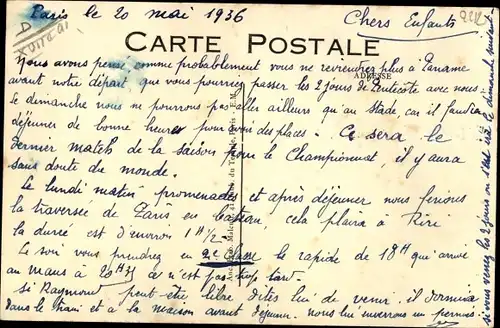 Paris le 20 mai 1936
Chers Enfants
CARTE POSTALE
ADRESSE
Nous avons pensé comme probablement vous ne reviendrez plus à Paname
avant notre départ que vous pourriez passer les 2 jours de Pentecôte avec nous
Le dimanche nous ne pourrons pas aller ailleurs qu'au Stade car il faudra
déjeuner de bonne heure pour avoir des places. Ce sera le
dernier match de la saison pour le Championnat, il y aura
sans doute du monde.
Le lundi matin promenades et après déjeuner nous ferions
la traversée de Paris en bateau, cela plaira à Riri
la durée est d'environ 1H½
Le soir vous prendrez en 2e Classe le rapide de 18H qui arrive
au mans à 20H35 ce n'est pas trop tard.
si Raymond peut être libre dites lui de venir. il dormira
dans le train et à la maison avant déjeuner. nous lui enverrons un permis.
si vous venez les 2 jours on s'est ici le dimanche suivant